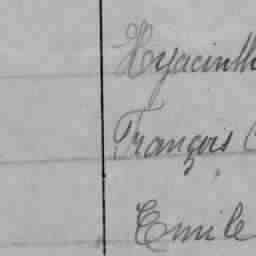 Hyacinth
François
Emile